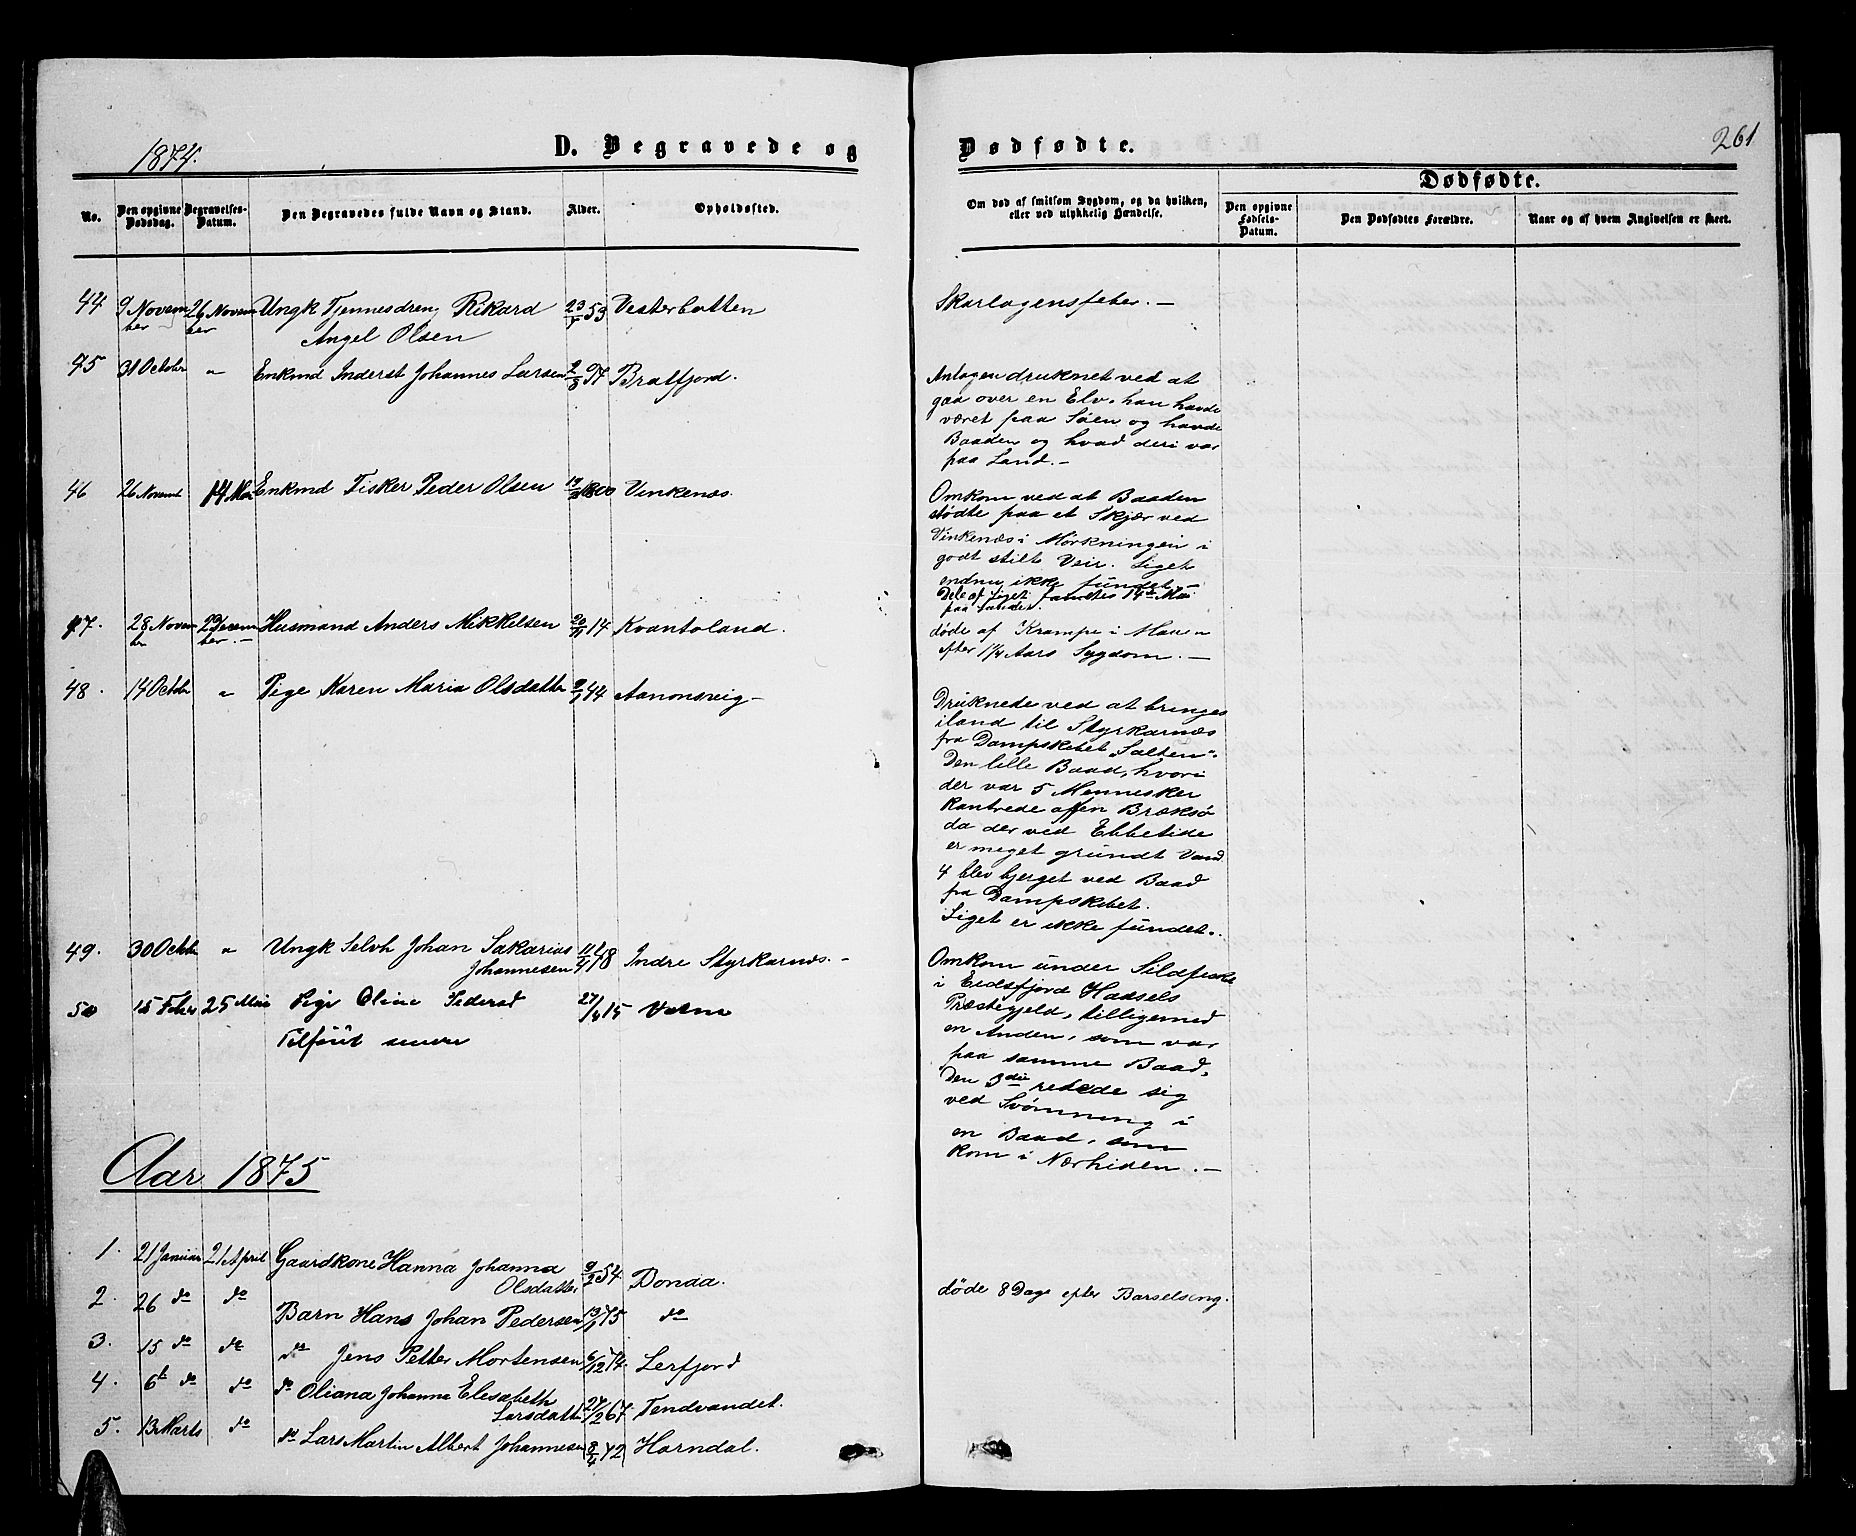 1874.
D. Begravede og
Dødfødte.
261
No.
Den opgivne Dødsdag.
Begravelses-Datum.
Den Begravedes fulde Navn og Stand.
Alder.
Opholdssted.
Om død af smitsom Sygdom, og da hvilken, eller ved ulykkelig Hændelse.
Dødfødte.
Den opgivne Fødsels-Datum.
Den Dødfødtes Forældre.
Naar og af hvem Angivelsen er skeet.
44 9 November 26 November Ungk Tjennesdreng Rikard 53 Vesterbotten
Angel Olsen
Skarlagensfeber. —
45 31 October " Enkmd Inderst Johannes Larsen 97 Bratfjord.
Antagen druknet ved at
gaa over en Elv. han havde
været paa Søen og havde
Baaden og hvad deri var
paa Land. —
46 26 Novemb 14 Mai Enkmd Fisker Peder Olsen 1800 Vinkenæs.
Omkom ved at Baaden
stødte paa et Skjær ved
Vinkenæs i Mørkningen i
godt stilt Veir. Liget
endnu ikke fundet. —
Dele af Liget fandtes 14de Mai
paa Landet.
47. 28 November 29 December — Husmand Anders Mikkelsen 20/11 14 Kvantoland.
døde af Krampe i Maven
efter 1¼ Aars Sygdom. —
48. 14 October " Pige Karen Maria Olsdatter 44 Aanonsveig —
Druknede ved at bringes
iland til Styrkarnæs
fra Dampskibet "Salten".
Den lille Baad, hvori
der var 5 Mennesker
kantrede af en Bræksø
da der ved Ebbetide
er meget grundt Vand
4 blev bjerget ved Baad
fra Dampskibet.
Liget er ikke fundet.
49. 30 Octobr " Ungk Selvh Johan Sakarias 11/4 48 Indre Styrkarnæs. —
Johannesen
Omkom under Sildfiske
i Eidsfjord Hadsels
Præstegjeld, tilligemed
en Anden, som var
paa samme Baad,
Den 3die redede sig
ved Svømning i
en Baad, som
kom i Nærheden. —
50 15 Febr 25 Mai Pige Oline Pedersd 27/4 15
Tilføiet senere
Aar 1875
1. 21 Januar 21 April Gaardkone Hanna Johanna 9/2 54 Bonaa.
Olsdatter
døde 8 Dage efter Barselseng.
2. 26 do do Barn Hans Johan Pedersen 13/1 75 do
3. 15 do do do Jens Petter Mortensen 6/12 74. Lerfjord
4. 6t do do do Oliana Johanna Elesabeth
Larsdatter 27/2 67. Tendvandet.
5. 13 Marts do do Lars Martin Albert Johannesen 8/4 72 Horndal.